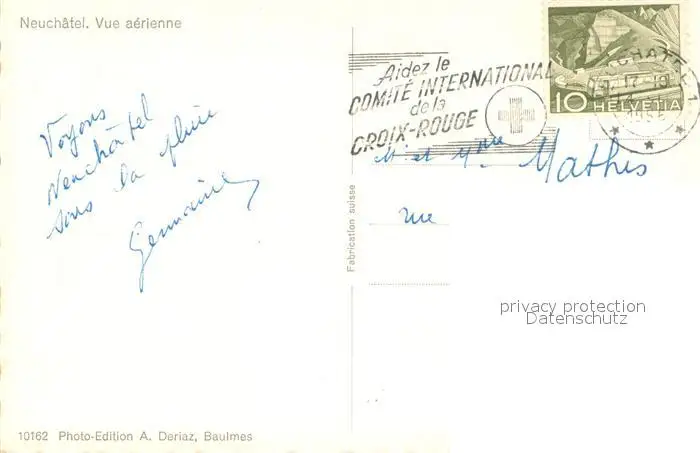 Neuchâtel. Vue aérienne
Voyons
Neuchâtel
sous la pluie
Germaine
10162 Photo-Edition A. Deriaz, Baulmes
Fabrication suisse
Aidez le
COMITÉ INTERNATIONAL
de la
CROIX-ROUGE
10 HELVETIA
M et Mme Mathis
rue
privacy protection
Datenschutz